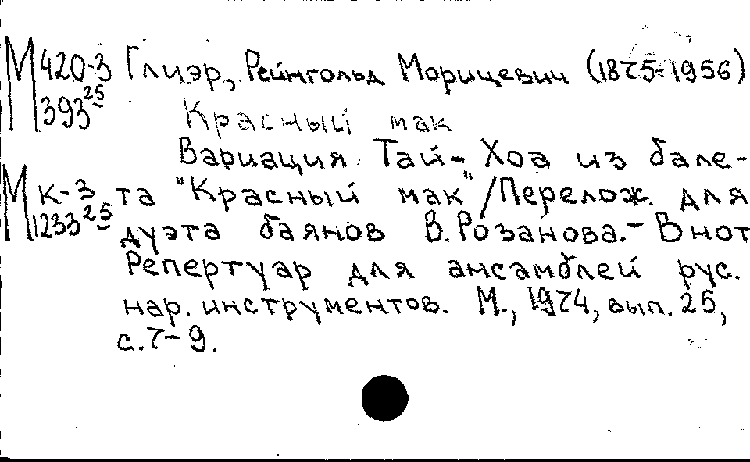 М 420-3 Глиэр, Рейнгольд Морицевич (1875-1956)
393 25 Красный мак
Вариация Тай-Хоа из бале-
М К-3 та "Красный мак" /Перелож. для
1233 25 дуэта баянов В. Розанова.- В нот
Репертуар для ансамблей рус.
нар. инструментов. М., 1974, вып. 25,
с.7-9.